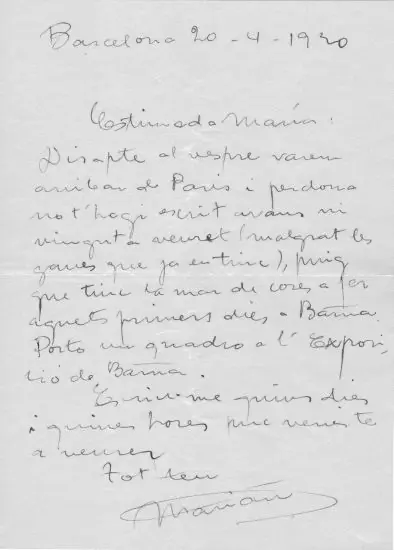 Barcelona 20-4-1920
Estimada María:
Disapte al vespre varem
arribar de Paris i perdona
no t'hagi escrit avans ni
vingut a veuret (malgrat les
ganes que ja en tinc), puig
que tinc la mar de coses a fer
aquets primers dies a Barna.
Porto un quadro a l'Exposi-
ció de Barna.
Escriume quins dies
i quines hores puc venir te
a veurer
Tot teu
Marián